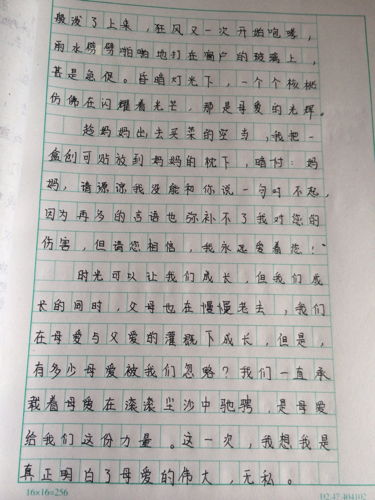 泼了上来，狂风又一次开始咆哮，
雨水劈劈啪啪地打在窗户的玻璃上，
甚是急促。昏暗灯光下，一个个核桃
仿佛在闪耀着光芒，那是母爱的光辉。
趁妈妈出去买菜的空当，我把一
盒创可贴放到妈妈的枕下，暗忖：妈
妈，请原谅我没能和你说一句对不起，
因为再多的言语也弥补不了我对您的
伤害，但请您相信，我永远爱着您！"
时光可以让我们成长，但我们成
长的同时，父母也在慢慢老去，我们
在母爱与父爱的灌溉下成长，但是，
有多少母爱被我们忽略？我们一直承
载着母爱在滚滚尘沙中驰骋，是母爱
给我们这份力量。这一次，我想我是
真正明白了母爱的伟大，无私。
16×16=256